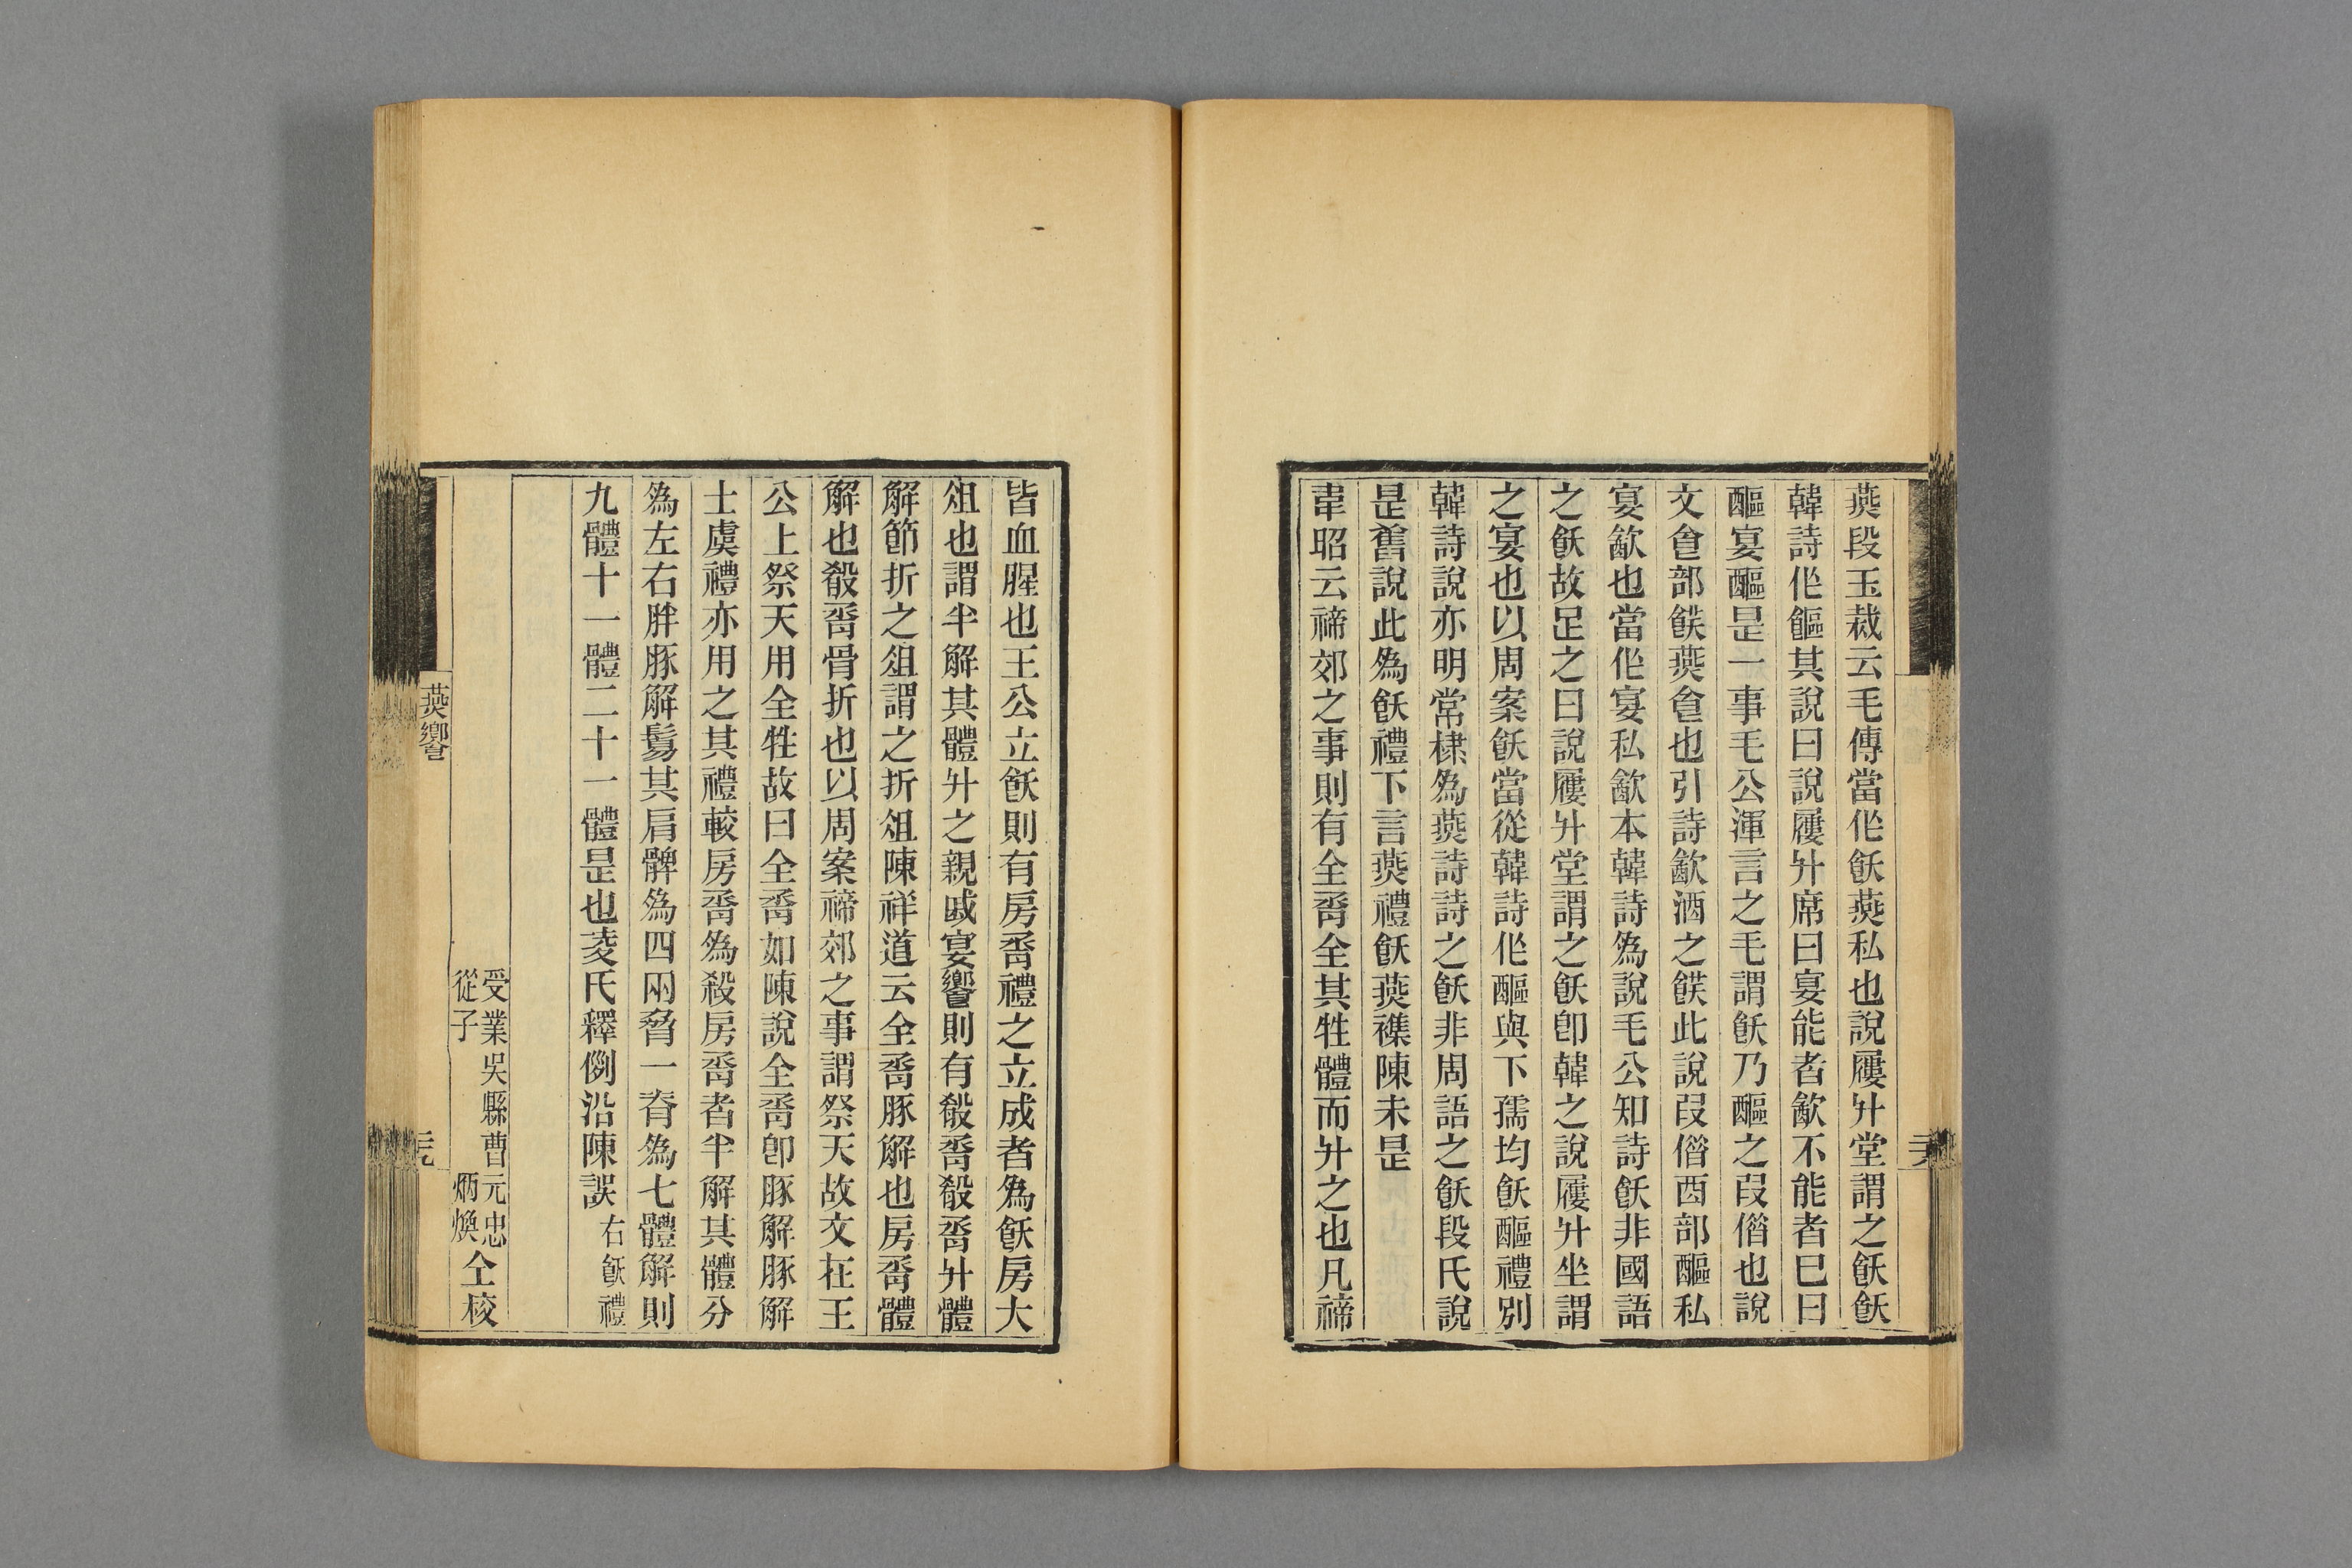 燕段玉裁云毛傳當作飫燕私也說屨升堂謂之飫飫
韓詩作饇其說曰說屨升席曰宴能者飲不能者已曰
醧宴醧是一事毛公渾言之毛謂飫乃醧之叚借也說
文食部䬼燕食也引詩飲酒之䬼此說叚借酉部醧私
宴飲也當作宴私飲本韓詩為說毛公知詩飫非國語
之飫故足之曰說屨升堂謂之飫卽韓之說屨升坐謂
之宴也以周案飫當從韓詩作醧與下孺均飫醧禮別
韓詩說亦明常棣為燕詩詩之飫非周語之飫段氏說
是舊說此為飫禮下言燕禮飫燕襍陳未是
韋昭云禘郊之事則有全脀全其牲體而升之也凡禘
皆血腥也王公立飫則有房脀禮之立成者為飫房大
俎也謂半解其體升之親戚宴饗則有殽脀殽脀升體
解節折之俎謂之折俎陳祥道云全脀豚解也房脀體
解也殽脀骨折也以周案禘郊之事謂祭天故文在王
公上祭天用全牲故曰全脀如陳說全脀卽豚解豚解
士虞禮亦用之其禮較房脀為殺房脀者半解其體分
為左右胖豚解鬄其肩髀為四兩胉一脊為七體解則
九體十一體二十一體是也凌氏釋例沿陳誤 右飫禮
受業吳縣曹元忠
從子 炳煥 仝校
燕饗